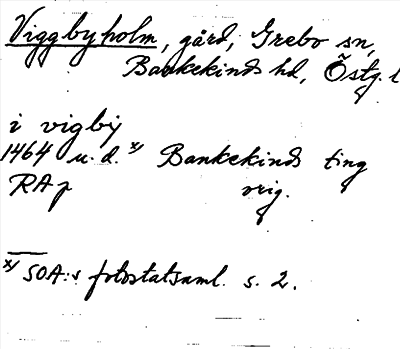 Viggbyholm, gård, Grebo sn,
Bankekinds hd, Östg. l
i vigby
1464 u. d. x) Bankekinds ting
RAp orig.
x) SOA:s fotostatsaml. s. 2.